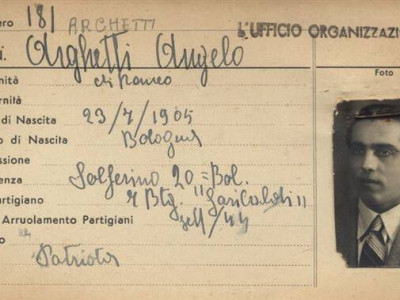 ero 181 ARCHETTI
L'UFFICIO ORGANIZZAZI
i. Arghetti Angelo
Foto
nità di Romeo
rnità
di Nascita 23/7/1905
o di Nascita Bologna
essione
enza Solferino 20 = Bol.
artigiano Btg. "Garibaldi"
Arruolamento Partigiani sett/44
o Patriota